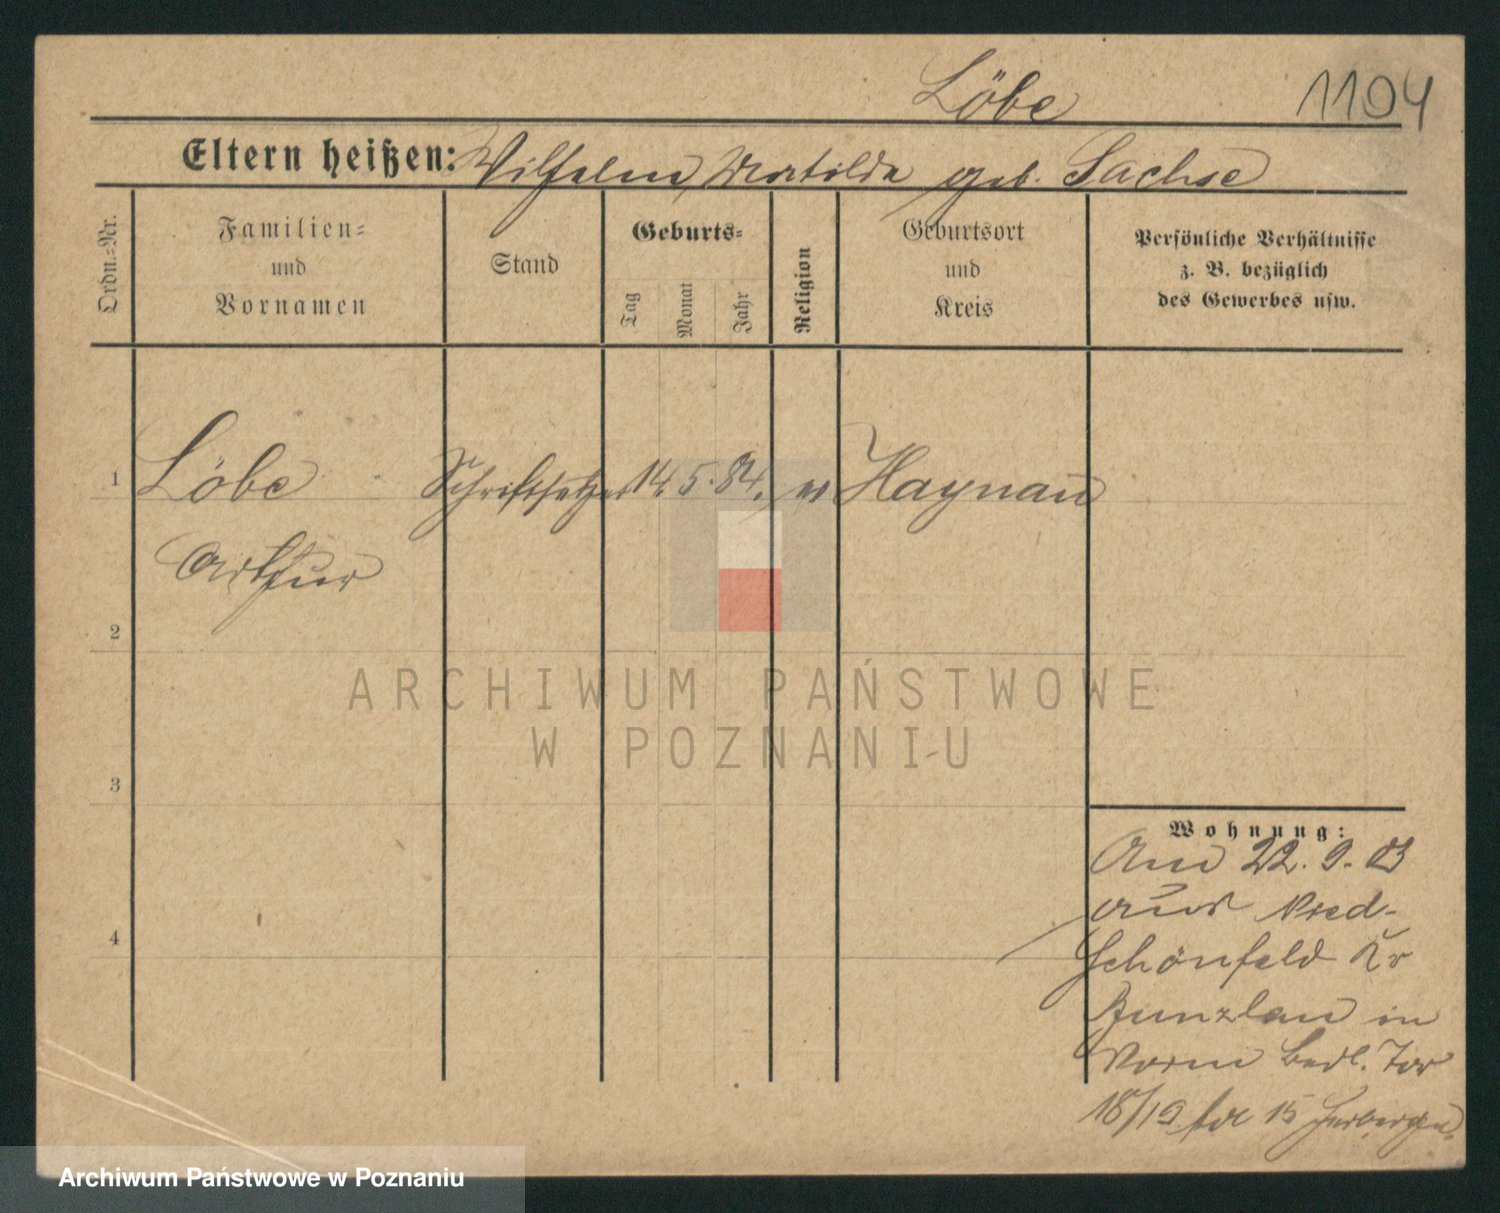 Löbe 1104
Eltern heißen: Wilhelm, Matilda geb. Sachse
Ordn.-Nr.
Familien- und Vornamen
Stand
Geburts-
Tag
Monat
Jahr
Religion
Geburtsort und Kreis
Persönliche Verhältnisse
z. B. bezüglich
des Gewerbes usw.
1 Löbe Schriftsetzer 14. 5. 84. ev Haynau
Arthur
2
3
4
Wohnung:
Am 22. 9. 03
aus Nied-
schönfeld Kr
Bunzlau in
Vorm Berl. Tor
18/19 bei Herbergen
ARCHIWUM PAŃSTWOWE
W POZNANIU
Archiwum Państwowe w Poznaniu